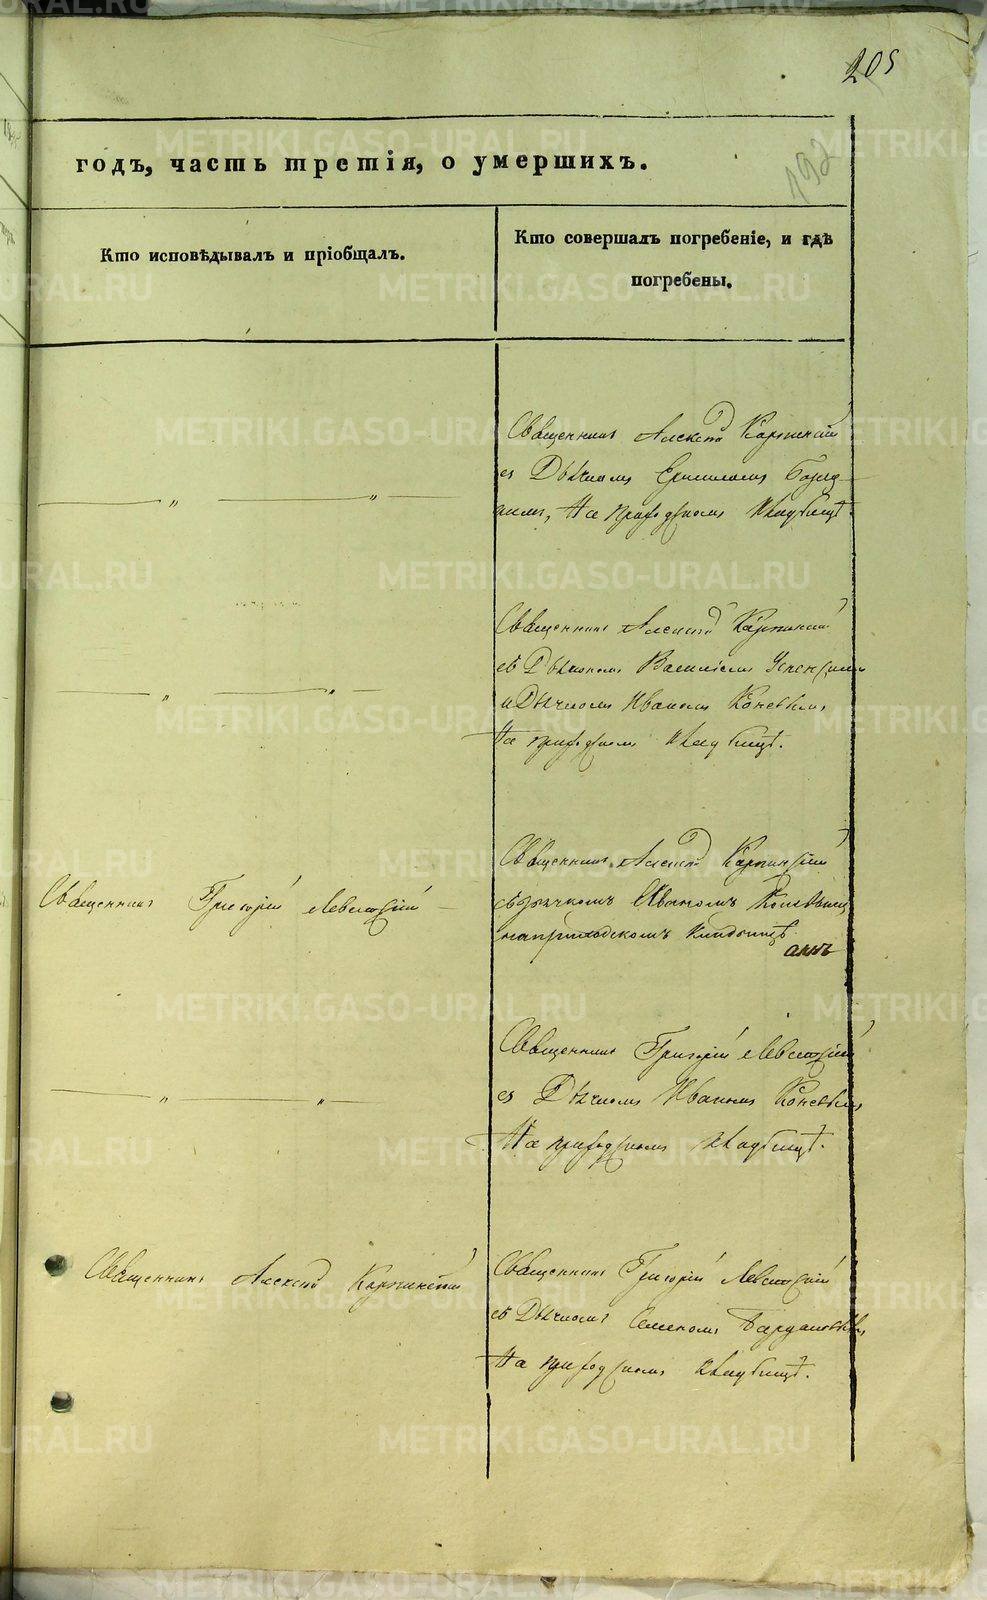 205
192
годъ, часть третія, о умершихъ.
Кто исповѣдывалъ и пріобщалъ.
Кто совершалъ погребеніе, и гдѣ
погребены.
Священникъ Алексѣй Карпинскій
съ Дьячкомъ
на приходскомъ кладбищѣ.
Священникъ Алексѣй Карпинскій
съ Дьякономъ Василіемъ Успенскимъ
и Дьячкомъ Иваномъ Коневымъ
На приходскомъ кладбищѣ.
Священникъ Григорій Левитскій
Священникъ Алексѣй Карпинскій
съ дьячкомъ Иваномъ Коневымъ
на приходскомъ кладбищѣ
Священникъ Григорій Левитскій
съ Дьячкомъ Иваномъ Коневымъ
На приходскомъ кладбищѣ.
Священникъ Алексѣй Карпинскій
Священникъ Григорій Левитскій
съ Дьячкомъ Семеномъ
На приходскомъ кладбищѣ.
METRIKI.GASO-URAL.RU